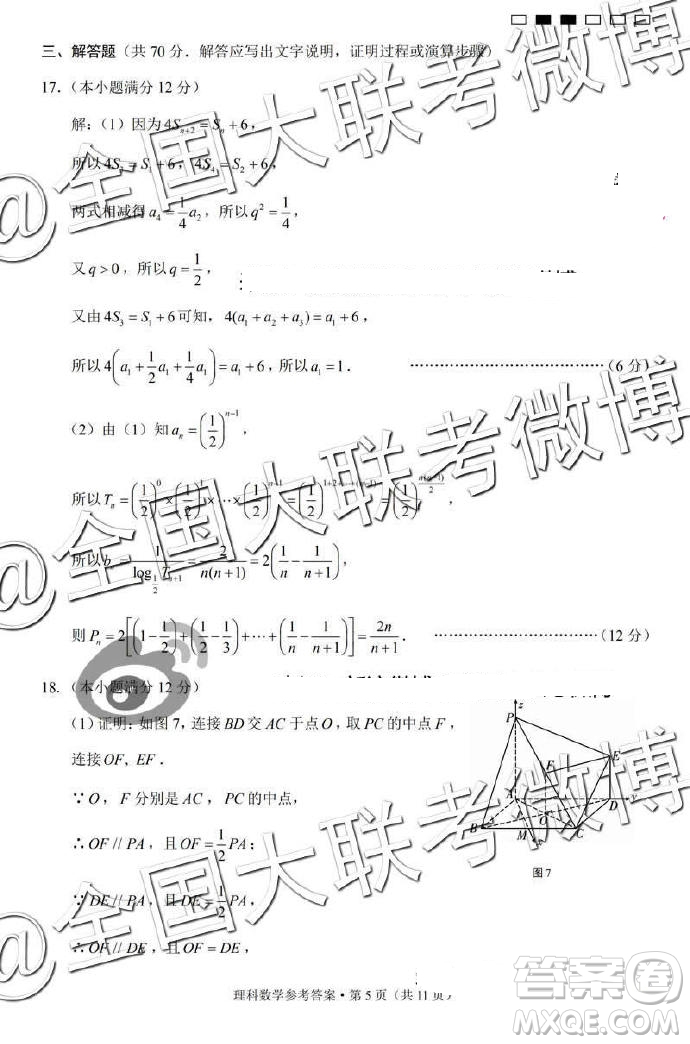 三、解答题（共 70 分．解答应写出文字说明，证明过程或演算步骤）
17.（本小题满分 12 分）
解：（1）因为 4S_{n+2}=S_n+6，
所以 4S_3=S_1+6，4S_4=S_2+6，
两式相减得 a_4=\frac{1}{4}a_2，所以 q^2=\frac{1}{4}，
又 q>0，所以 q=\frac{1}{2}，
又由 4S_3=S_1+6 可知，4(a_1+a_2+a_3)=a_1+6，
所以 4(a_1+\frac{1}{2}a_1+\frac{1}{4}a_1)=a_1+6，所以 a_1=1．………………………………（6 分）
（2）由（1）知 a_n=(\frac{1}{2})^{n-1}，
所以 T_n=(\frac{1}{2})^0×(\frac{1}{2})^1×⋯×(\frac{1}{2})^{n-1}=(\frac{1}{2})^{1+2+⋯+(n-1)}=(\frac{1}{2})^{\frac{n(n-1)}{2}}，
所以 b_n=\frac{1}{\log_{\frac{1}{2}}T_{n+1}}=\frac{2}{n(n+1)}=2(\frac{1}{n}-\frac{1}{n+1})，
则 P_n=2[(1-\frac{1}{2})+(\frac{1}{2}-\frac{1}{3})+⋯+(\frac{1}{n}-\frac{1}{n+1})]=\frac{2n}{n+1}．…………………………（12 分）
18.（本小题满分 12 分）
（1）证明：如图 7，连接 BD 交 AC 于点 O，取 PC 的中点 F，
连接 OF, EF．
∵O，F 分别是 AC，PC 的中点，
∴OF // PA，且 OF=\frac{1}{2}PA；
∵DE // PA，且 DE=\frac{1}{2}PA，
∴OF // DE，且 OF=DE，
z
P
E
F
A
D
y
B
O
M
C
x
图 7
理科数学参考答案·第 5 页（共 11 页）
@全国大联考微博
@全国大联考微博
@全国大联考微博
答案卷
MXQE.COM